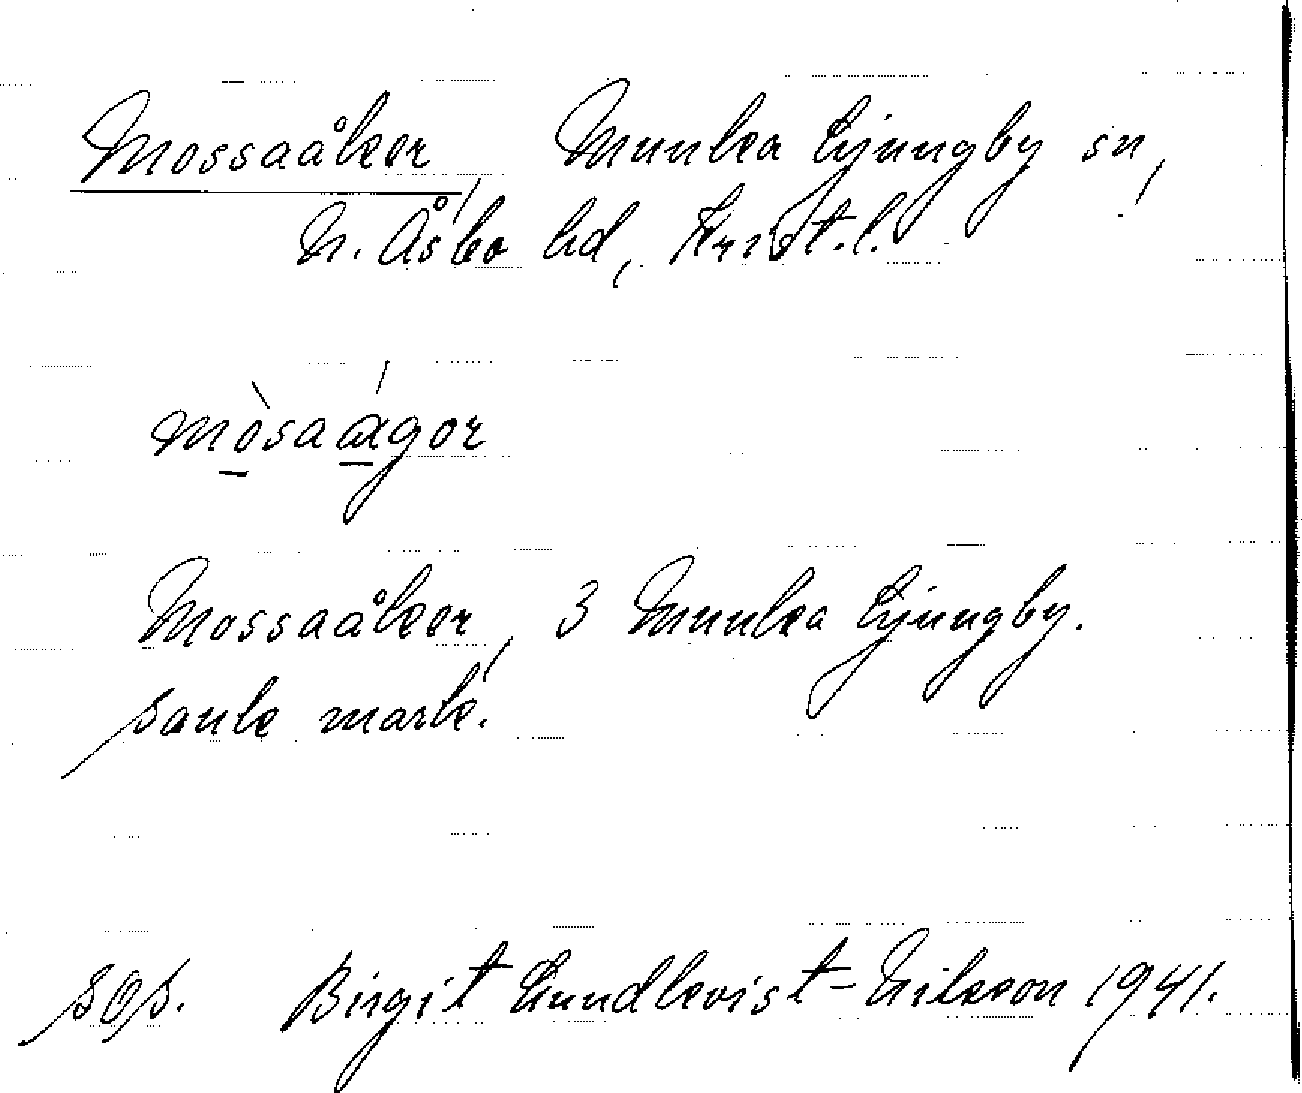 Mossaåker, Munka Ljungby sn,
N. Åsbo hd, Krist.l.
mòsaágor
Mossaåker, 3 Munka Ljungby.
sank mark.
Birgit Lundkvist-Nilsson 1941.